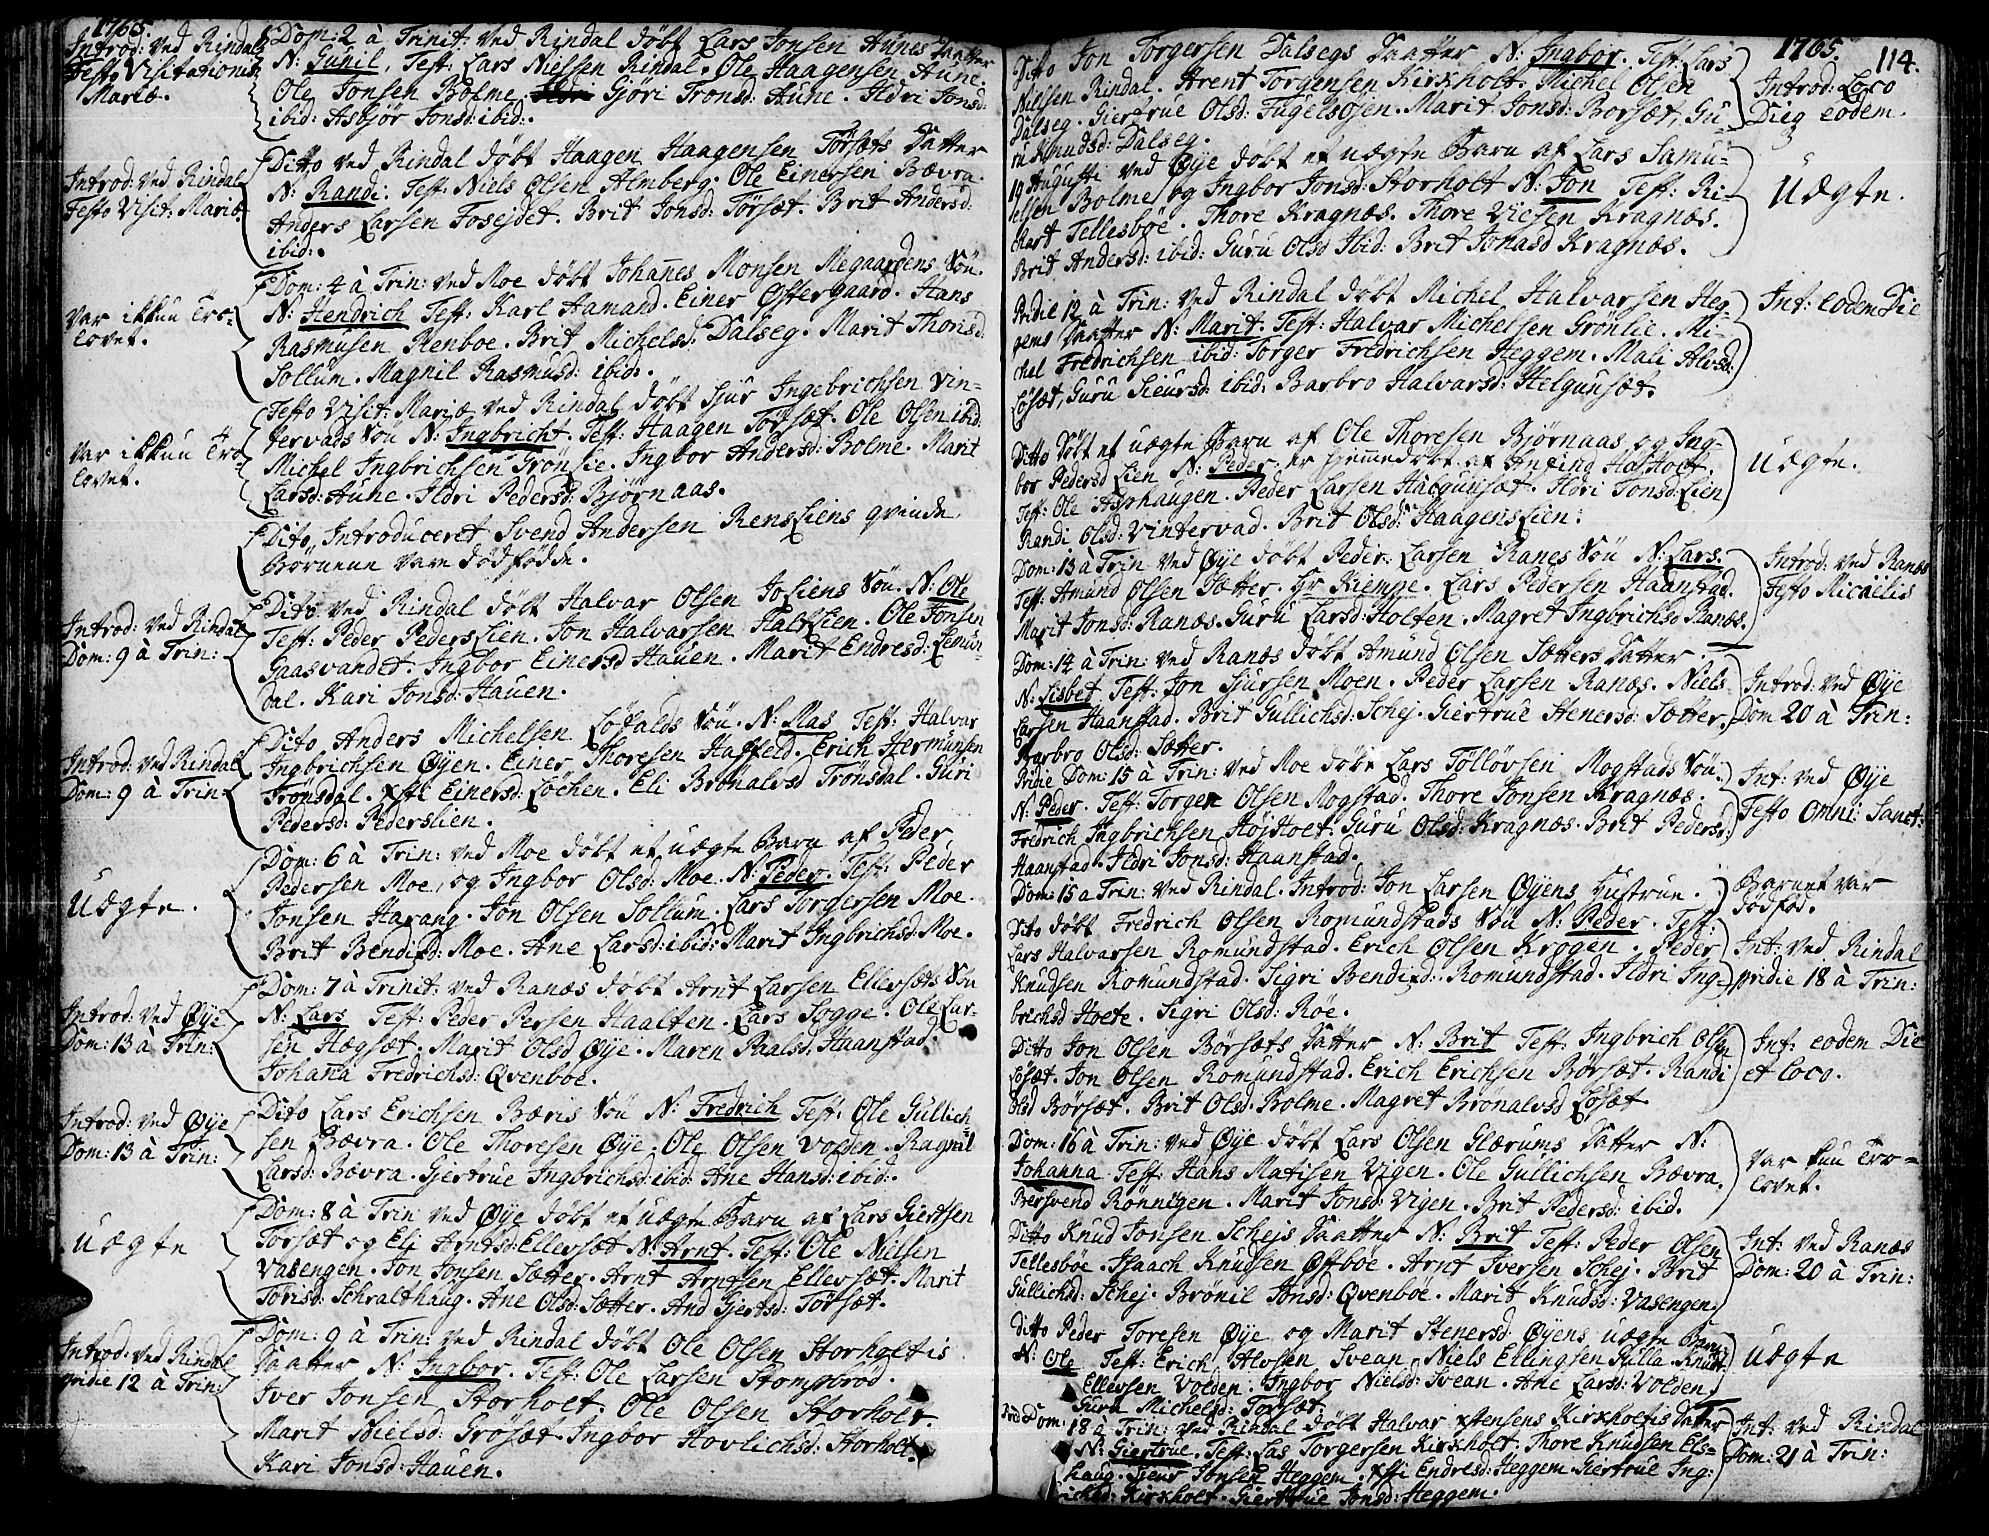 1765.
Introd: ved Rindal
Festo Visitationis
Mariæ.
Dom: 2 à Trinit: ved Rindal døbt Lars Jonsen Aunes Daatter
N: Gunil, Test: Lars Nielsen Rindal. Ole Haagensen Aune.
Ole Jonsen Bolme. Gjøri Tronsd: Aune. Ildri Jonsd:
ibid: Asbjør Jonsd: ibid:.
Introd: ved Rindal
Festo Visit: Mariæ
Ditto ved Rindal døbt Haagen Haagensen Tørsæts Datter
N: Randi. Test: Niels Olsen Almberg. Ole Einersen Bævra.
Anders Larsen Fosejdet. Brit Jonsd: Tørsæt. Brit Andersd:
ibid:.
Var ikkun Tro-
lovet.
Dom: 4 à Trin: ved Moe døbt Johanes Monsen Megaardens Søn.
N: Hendrich Test: Karl Aamand. Einer Østergaard. Hans
Rasmusen Stenboe. Brit Michelsd: Dalseg. Marit Thorisd:
Sollum. Magnil Rasmusd: ibid:.
Var ikkun Tro-
lovet.
Festo Visit: Mariæ ved Rindal døbt Sjur Ingebrichsen Vin-
tervads Søn N: Ingbricht. Test: Haagen Tørsæt. Ole Olsen ibid:
Michel Ingbrichsen Grønlie. Ingbor Andersd: Bolme. Marit
Larsd: Aune. Ildri Pedersd: Bjørnaas.
Dito, Introduceret Svend Andersen Rensliens qvinde
Børnene vare dødfødde.
Introd: ved Rindal
Dom: 9 à Trin:
Dito ved Rindal døbt Halvar Olsen Josliens Søn. N: Ole
Test: Peder Pederslien. Jon Halvarsen Haltslien. Ole Jonsen
Gaasvandet. Ingbor Einersd Hauen. Marit Endresd: Lemun-
dal. Kari Jonsd: Hauen.
Introd: ved Rindal
Dom: 9 à Trin:
Dito, Anders Michelsen Løfalds Søn. N: Mas Test: Halvar
Ingbrichsen Øyen. Einer Thoresen Haffeld. Erich Hermunsen
Tronsdal. Xsti Einersd: Løchen. Eli Bronalvsd Trønsdal. Guri
Pedersd: Pederslien.
Uægte.
Dom: 6 à Trin: ved Moe døbt et uægte Barn af Peder
Pedersen Moe, og Ingbor Olsd: Moe. N: Peder. Test: Peder
Jonsen Harang. Jon Olsen Sollum. Lars Torgersen Moe.
Brit Bendixd: Moe. Ane Larsd: ibid: Marit Ingbrichsd: Moe.
Introd: ved Øye
Dom: 13 à Trin:
Dom: 7 à Trinit: ved Ranæs døbt Arnt Larsen Ellevsæts Søn
N: Lars Test: Peder Persen Haalten. Lars Sogge. Ole Lar-
sen Hægsæt. Marit Olsd Øye. Maren Paalsd: Haanstad.
Johana Fredrichsd: Qvenboe.
Introd: ved Øye
Dom: 13 à Trin:
Dito Lars Erichsen Bæris Søn N: Fredrich Test: Ole Gullich-
sen Bævra. Ole Thoresen Øye. Ole Olsen Volden. Ragnil
Larsd: Bævra. Gjertrue Ingbrichsd: ibid: Ane Hansd: ibid:.
Uægte
Dom: 8 à Trin ved Øye døbt et uægte Barn af Lars Giertsen
Tørsæt og Eli Arntsd: Ellevsæt N: Arnt. Test: Ole Nielsen
Vasengen. Jon Jonsen Sætter. Arnt Arntsen Ellevsæt. Marit
Torisd: Schralthaug. Ane Olsd: Sætter. And Gjertsd: Tørsæt.
Introd: ved Rindal
pridie 12 à Trin:
Dom: 9 à Trin: ved Rindal døbt Ole Olsen Storholtis
Daatter N: Ingbor. Test: Ole Larsen Stomprød.
Iver Jonsen Storholt. Ole Olsen Storholt.
Marit Nielsd: Grøsæt. Ingbor Hovlichsd: Storholt.
Kari Jonsd: Hauen.
1765. 114.
Ditto Jon Torgersen Dalsegs Daatter N: Ingbor. Test: Lars
Nielsen Rindal. Arent Torgensen Kirkholt. Michel Olsen
Dalseg. Giertrue Olsd: Fagelsosen. Marit Jonsd: Borsæt, Gu-
ru Knudsd: Dalseg.
Introd: Loco
Dieq eodem.
19 Augusti ved Øye døbt et uægte Barn af Lars Samu-
elsen Bolme og Ingbor Jonsd: Storholt N: Jon Test: Ri-
kart Tellesbøe. Thore Kragnæs. Thore Viesen Kragnæs.
Brit Andersd: ibid: Guru Olsd Ibid: Brit Jonasd Kragnæs.
Uægte.
Pridie 12 à Trin: ved Rindal døbt Michel Halvarsen Heg-
gems Daatter N: Marit. Test: Halvar Michelsen Grönlie. Mi-
chel Fredrichsen ibid: Torger Fredrichsen Heggem. Mali Alvsd:
Løsæt, Guru Sieursd: ibid: Barbro Halvarsd: Helgunsæt.
Int: eodem Die
Ditto døbt et uægte Barn af Ole Thoresen Bjørnaas og Ing-
bor Pedersd Lien N: Peder. er hjemmedøbt af Anfind Halholt.
Test: Ole Asphaugen. Peder Larsen Halgunsæt. Ildri Jonsd: Lien
Randi Olsd: Vintervad. Brit Olsd: Haagenslien.
Uægte.
Dom: 13 à Trin ved Øye døbt Peder Larsen Ranes Søn N: Lars.
Test: Amund Olsen Sætter. Hr Kiempe. Lars Pedersen Haanstad.
Marit Jonsd: Ranæs. Guru Larsd: Holten. Magret Ingbrichsd Ranæs.
Introd: ved Ranæs
Festo Micaelis
Dom: 14 à Trin: ved Ranæs døbt Amund Olsen Sætters Datter.
N: Lisbet Test: Jon Sjursen Moen. Peder Larsen Ranæs. Niels
Larsen Haanstad. Brit Gullichsd: Schej. Giertrue Stenersd: Sætter.
Barbro Olsd: Sætter.
Introd: ved Øye
Dom 20 à Trin:
Pridie Dom: 15 à Trin: ved Moe døbt Lars Tølløvsen Mogstads Søn
N: Peder. Test: Torger Olsen Mogstad. Thore Jonsen Kragnæs.
Fredrich Ingbrichsen Højholt. Guru Olsd: Kragnæs. Brit Pedersd:
Haanstad. Ildri Jonsd: Haanstad.
Int: ved Øye
Festo Omni: Sanct:
Dom: 15 a Trin: ved Rindal. Introd: Jon Larsen Øyens Hustrue.
Barnet var
dødfød.
Dito døbt Fredrich Olsen Romundstads Søn N: Peder. Test:
Lars Halvarsen Romundstad. Erich Olsen Krogen. Peder
Knudsen Romundstad. Sigri Bendixd: Romundstad. Ildri Ing-
brichsd Hoete. Sigri Olsd: Røe.
Int: ved Rindal
pridie 18 à Trin:
Ditto Jon Olsen Børsæts Datter N: Brit Test: Ingbrich Olsen
Løsæt. Jon Olsen Romundstad. Erich Erichsen Børsæt. Randi
Olsd Børsæt. Brit Olsd: Bolme. Magret Brönalvsd Løsæt
Int: eodem Die
et Loco.
Dom: 16 à Trin: ved Øye døbt Lars Olsen Glærums Datter N:
Johanna Test: Hans Matisen Vigen. Ole Gullichsen Bævra.
Bersvend Rönnigen. Marit Jonsd: Vigen. Brit Pedersd: ibid.
Var kun Tro-
lovet.
Ditto Knud Jonsen Schejs Daatter N: Brit Test: Peder Olsen
Tellesbøe. Isaach Knudsen Østbøe. Arnt Iversen Schej. Brit
Gullichsd: Schej. Brönil Jonsd: Qvenbøe. Marit Knudsd: Vasengen.
Int: ved Ranæs
Dom: 20 à Trin:
ditto Peder Toresen Øye og Marit Stenersd Øyens uægte Barn
N: Ole Test: Erich Alvsen Svean. Niels Ellingsen Rulla. Knut
Ellevsen Volden. Ingbor Nielsd: Svean. Ane Larsd: Volden.
Guru Michelsd: Tørsæt.
Uægte
Dom: 18 à Trin: ved Rindal døbt Halvar Xstensens Kirkholtis Datter
N: Giertrue. Test: Las Torgersen Kirkholt. Thore Knudsen Els-
haug. Sjeur Jonsen Heggem. Xsti Endresd: Heggem. Giertrue Ing:
richsd: Kirkholt. Giertrue Jonsd: Heggem.
Int: ved Rindal
Dom: 21 à Trin: